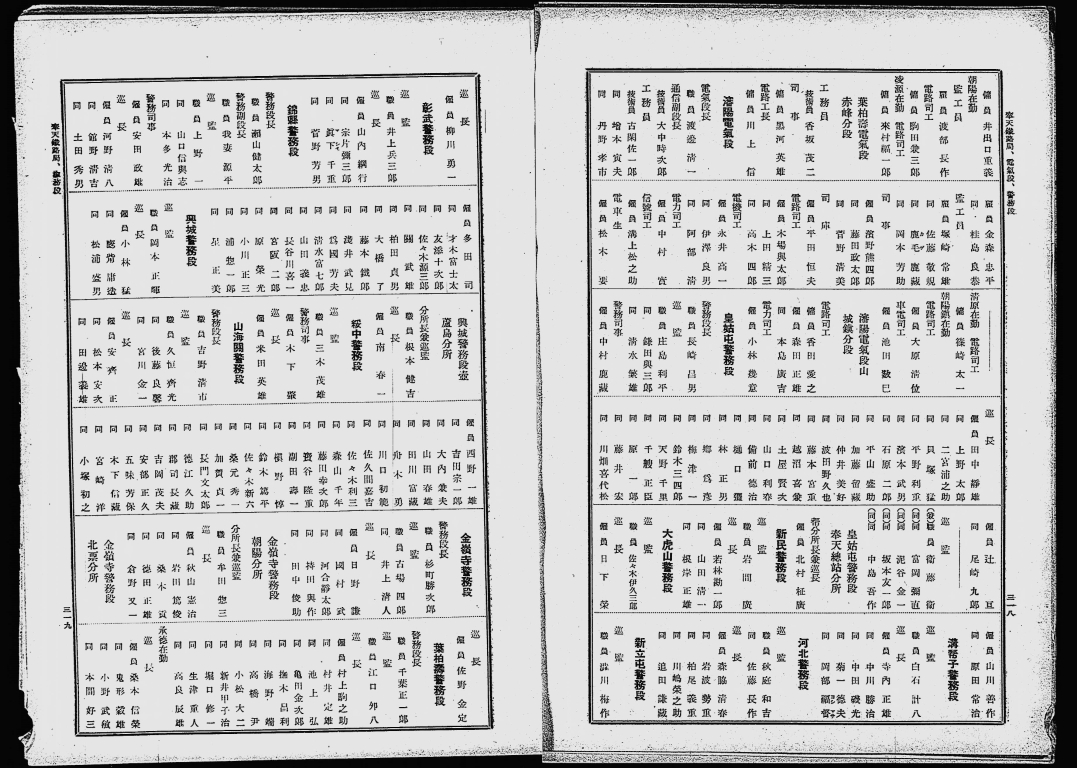 奉天鐵路局、電氣段、警務段
傭員 井出口重義
朝陽在勤
監工員
雇員 波部長作
電路司工
傭員 駒田兼三郎
凌源在勤 電路司工
傭員 來村福一
葉柏壽電氣段
赤峰分段
工務員
技術員 香坂茂二
司事
傭員 黒河英雄
電路工長
傭員 川上信
瀋陽電氣段
電氣段長
職員 渡邊清一
通信副段長
技術員 大中時次郎
工務員
技術員 古閑佐一郎
同 增本寅夫
同 丹野孝市
雇員 金森忠平
同 桂島良恭
監工員
雇員 塚崎常雄
電路司工
同 佐藤敬規
同 鹿毛鹿藏
同 岡本芳助
司事
傭員 濱野熊四郎
同 藤田政太郎
同 菅野清美
司庫
傭員 平田恒夫
電路司工
傭員 木場與太郎
同 上田精三
電機司工
同 高木四郎
傭員 永井高司
同 伊澤良男
電力司工
同 阿部清
信號司工
同 中村實
傭員 溝上松之助
電車生
傭員 松木要
清原在勤 電路司工
傭員 篠崎太一
朝陽鎮在勤
電路司工
傭員 大原清位
車電司工
傭員 池田數巳
瀋陽電氣段山
城鎮分段
電路司工
傭員 香田愛之
同 森田正雄
同 本島廣吉
電力司工
傭員 小林幾意
皇姑屯警務段
警務段長
職員 長崎昌男
巡監
職員 庄島利平
同 鎌田與三郎
同 清水榮雄
警務司事
傭員 中村鹿藏
巡長
傭員 田中靜雄
同 上野太郎
同 二宮浦之助
同 貝塚猛
同 平野利重
同 濱本武男
同 石原二郎
同 平山盛助
同 加藤留藏
同 仲井美好
同 波田野久也
同 藤本宮重
同 越沼喜蒙
同 土屋賢次
同 山口利春
同 備前德治
同 樋口彌
同 林正男
同 梅津一
同 鄉爲彦
同 鈴木三四郎
同 天野千里
同 千艘正臣
同 原一郎
同 藤井宏
同 川畑喜代松
傭員 辻亘
同 尾崎九郎
(兼)職員 衛藤衛
(同)同 富岡彌直
(同)同 泥谷金一
(同)同 坂本友一郎
(同)同 中島吾作
皇姑屯警務段
奉天總站分所
幇分所長兼巡長
傭員 北村柾廣
新民警務段
巡監
職員 岩間廣
巡長
傭員 若林勘一郎
同 山田清一
同 根岸正雄
大虎山警務段
巡監
職員 佐々木伊久三郎
巡長
傭員 日下榮
傭員 山川善作
同 原田常治
溝幇子警務段
巡監
職員 白石計八
巡長
傭員 寺内正雄
同 中川勝治
同 中田磯光
同 菊一德夫
同 岡部福督
河北警務段
巡監
職員 秋庭和吉
同 佐藤長作
巡長
傭員 森脇清春
同 岩波勢重
同 柏尾義重
同 川嶋榮之助
同 追田謙藏
新立屯警務段
巡監
職員 澁川梅作
三一八
奉天鐵路局、警務段
巡長
傭員 柳川勇一
彰武警務段
巡監
職員 井上兵三郎
巡長
傭員 山内綱行
同 宗片彌三郎
同 眞下千重
同 菅野芳男
錦縣警務段
警務段長
職員 瀬山健太郎
警務副段長
職員 我妻源平
巡監
職員 上野一
同 山口信與志
同 本多光治
警務司事
傭員 安田政雄
巡長
傭員 河野清八
同 舘野清吉
同 土田秀男
傭員 多田司
同 才木富士太
同 友添十次郎
同 佐々木源三郎
同 關武雄
同 柏田貞男
同 大橋了
同 藤本鐵郎
同 淺井武見
同 爲國芳夫
同 清水富七郎
同 山田義忠
同 長谷川喜一
同 宮阪二郎
同 原榮光
同 小川正三
同 浦惣一郎
同 星正美
興城警務段
巡監
職員 岡本正暉
巡長
傭員 小林猛
同 應常庸造
同 松浦盛男
興城警務段壺
蘆島分所
分所長兼巡監
職員 根本健吉
巡長
傭員 南春一
綏中警務段
巡監
職員 三木茂雄
警務司事
傭員 木下縈
巡長
傭員 米田英雄
山海關警務段
警務段長
職員 吉野清市
巡監
職員 久恒齊光
同 後藤良馨
同 宮川金一
巡長
傭員 安齊正
同 松本安次
同 田邊義雄
傭員 西野一雄
同 吉田宗一郎
同 大内兼夫
同 山田春雄
同 田川富藏
同 舟木勇
同 川口初範
同 佐久間嘉吉
同 佐々木利三
同 森山千年
同 藤田幸次郎
同 簑谷隆重
同 副田壽一
同 槇野惇
同 鈴木篤平
同 佐々木新六
同 桑元秀一
同 加賀貞一
同 長門文太郎
同 德江久助
同 郡司長藏
同 吉岡茂夫
同 安部正久
同 五味芳保
同 木下信藏
同 宮崎洋
同 小塚初之
金嶺寺警務段
警務段長
職員 杉町勝次郎
巡監
職員 古場四郎
同 井上清人
巡長
傭員 日野謙
同 國村武
同 河合靜太郎
同 持田與作
同 田中俊助
金嶺寺警務段
朝陽分所
分所長兼巡監
職員 牟田惣三
巡長
傭員 秋山憲治
同 岩田篤俊
同 桑木貢
同 德田正雄
同 倉野又一
金嶺寺警務段
北票分所
巡長
傭員 佐野金定
葉柏壽警務段
警務段長
職員 千葉正一郎
巡監
職員 江口夘八
巡長
傭員 村上駒之助
同 村井定雄
同 池上弘
同 亀田金次郎
同 撫木昌利
同 海野端
同 高橋尹
同 小松大二
同 新井甲子治
同 堀口修一
同 生津重人
同 高良辰雄
承德在勤
巡長
傭員 桑本信榮
同 鬼形毅雄
同 小野武敏
同 本間好三
三一九